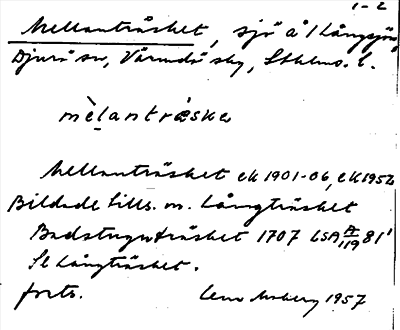 1-2
Mellanträsket, sjö å Långsjön,
Djurö sn, Värmdö skg, Sthlms. l.
mèlantræske
Mellanträsket ek 1901-06, ek 1952
Bildade tills. m. Långträsket
Badstuguträsket 1707 LSA A/119 81'
Se Långträsket.
forts. 1957